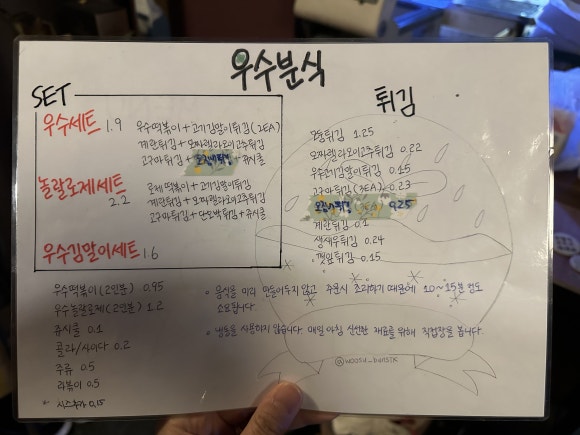 우수분식
SET
우수세트 1.9 우수떡볶이+고기김말이튀김(2EA)
계란튀김+오짜렐라오이고추튀김
고구마튀김+오징어튀김+쥬시쿨
놀랄로제세트 2.2 로제 떡볶이+고기김말이튀김
계란튀김+오짜렐라오이고추튀김
고구마튀김+단호박튀김+쥬시쿨
우수김말이세트 1.6
우수떡볶이(2인분) 0.95
우수놀랄로제(2인분) 1.2
쥬시쿨 0.1
콜라/사이다 0.2
주류 0.5
라볶이 0.5
튀김
모둠튀김 1.25
오짜렐라오이고추튀김 0.22
우수고기김말이튀김 0.15
고구마튀김(3EA) 0.23
오징어튀김(3EA) 0.25
계란튀김 0.1
생새우튀김 0.24
깻잎튀김 0.15
• 음식을 미리 만들어두지 않고 주문시 조리하기 때문에 10~15분 정도
소요됩니다.
• 냉동을 사용하지 않습니다. 매일 아침 신선한 재료를 위해 직접장을 봅니다.